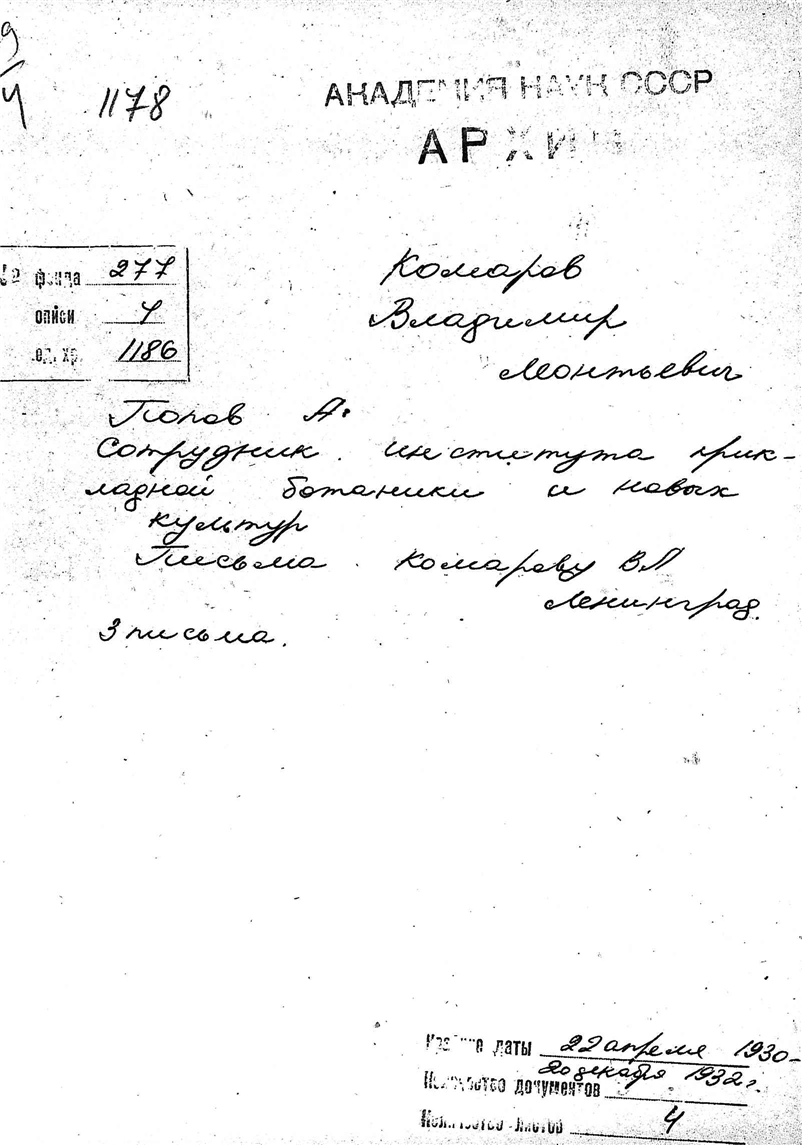 9
4
1178
АКАДЕМИЯ НАУК СССР
АРХИВ
№ фонда 277
описи 4
ед. хр. 1186
Комаров
Владимир
Леонтьевич
Попов А.
Сотрудник института прик-
ладной ботаники и новых
культур
Письма Комарову ВЛ
Ленинград.
3 письма.
Крайние даты 22 апреля 1930-
20 декабря 1932г.
Количество документов
Количество листов 4